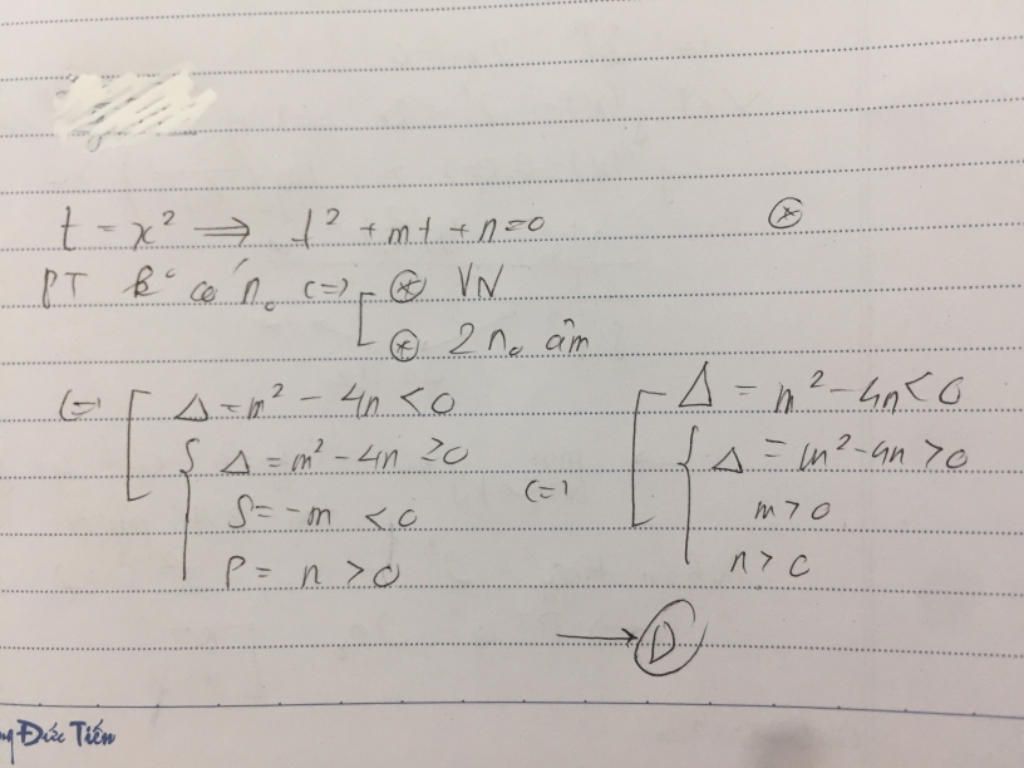 t = x² ⇒ t² + mt + n = 0 ⊛
PT k° có n₀ (=) [ ⊛ VN
⊛ 2 n₀ âm
(=) [ Δ = m² - 4n < 0
{ Δ = m² - 4n ≥ 0
S = -m < 0
P = n > 0
(=) [ Δ = m² - 4n < 0
{ Δ = m² - 4n > 0
m > 0
n > 0
→ D
Đức Tiến